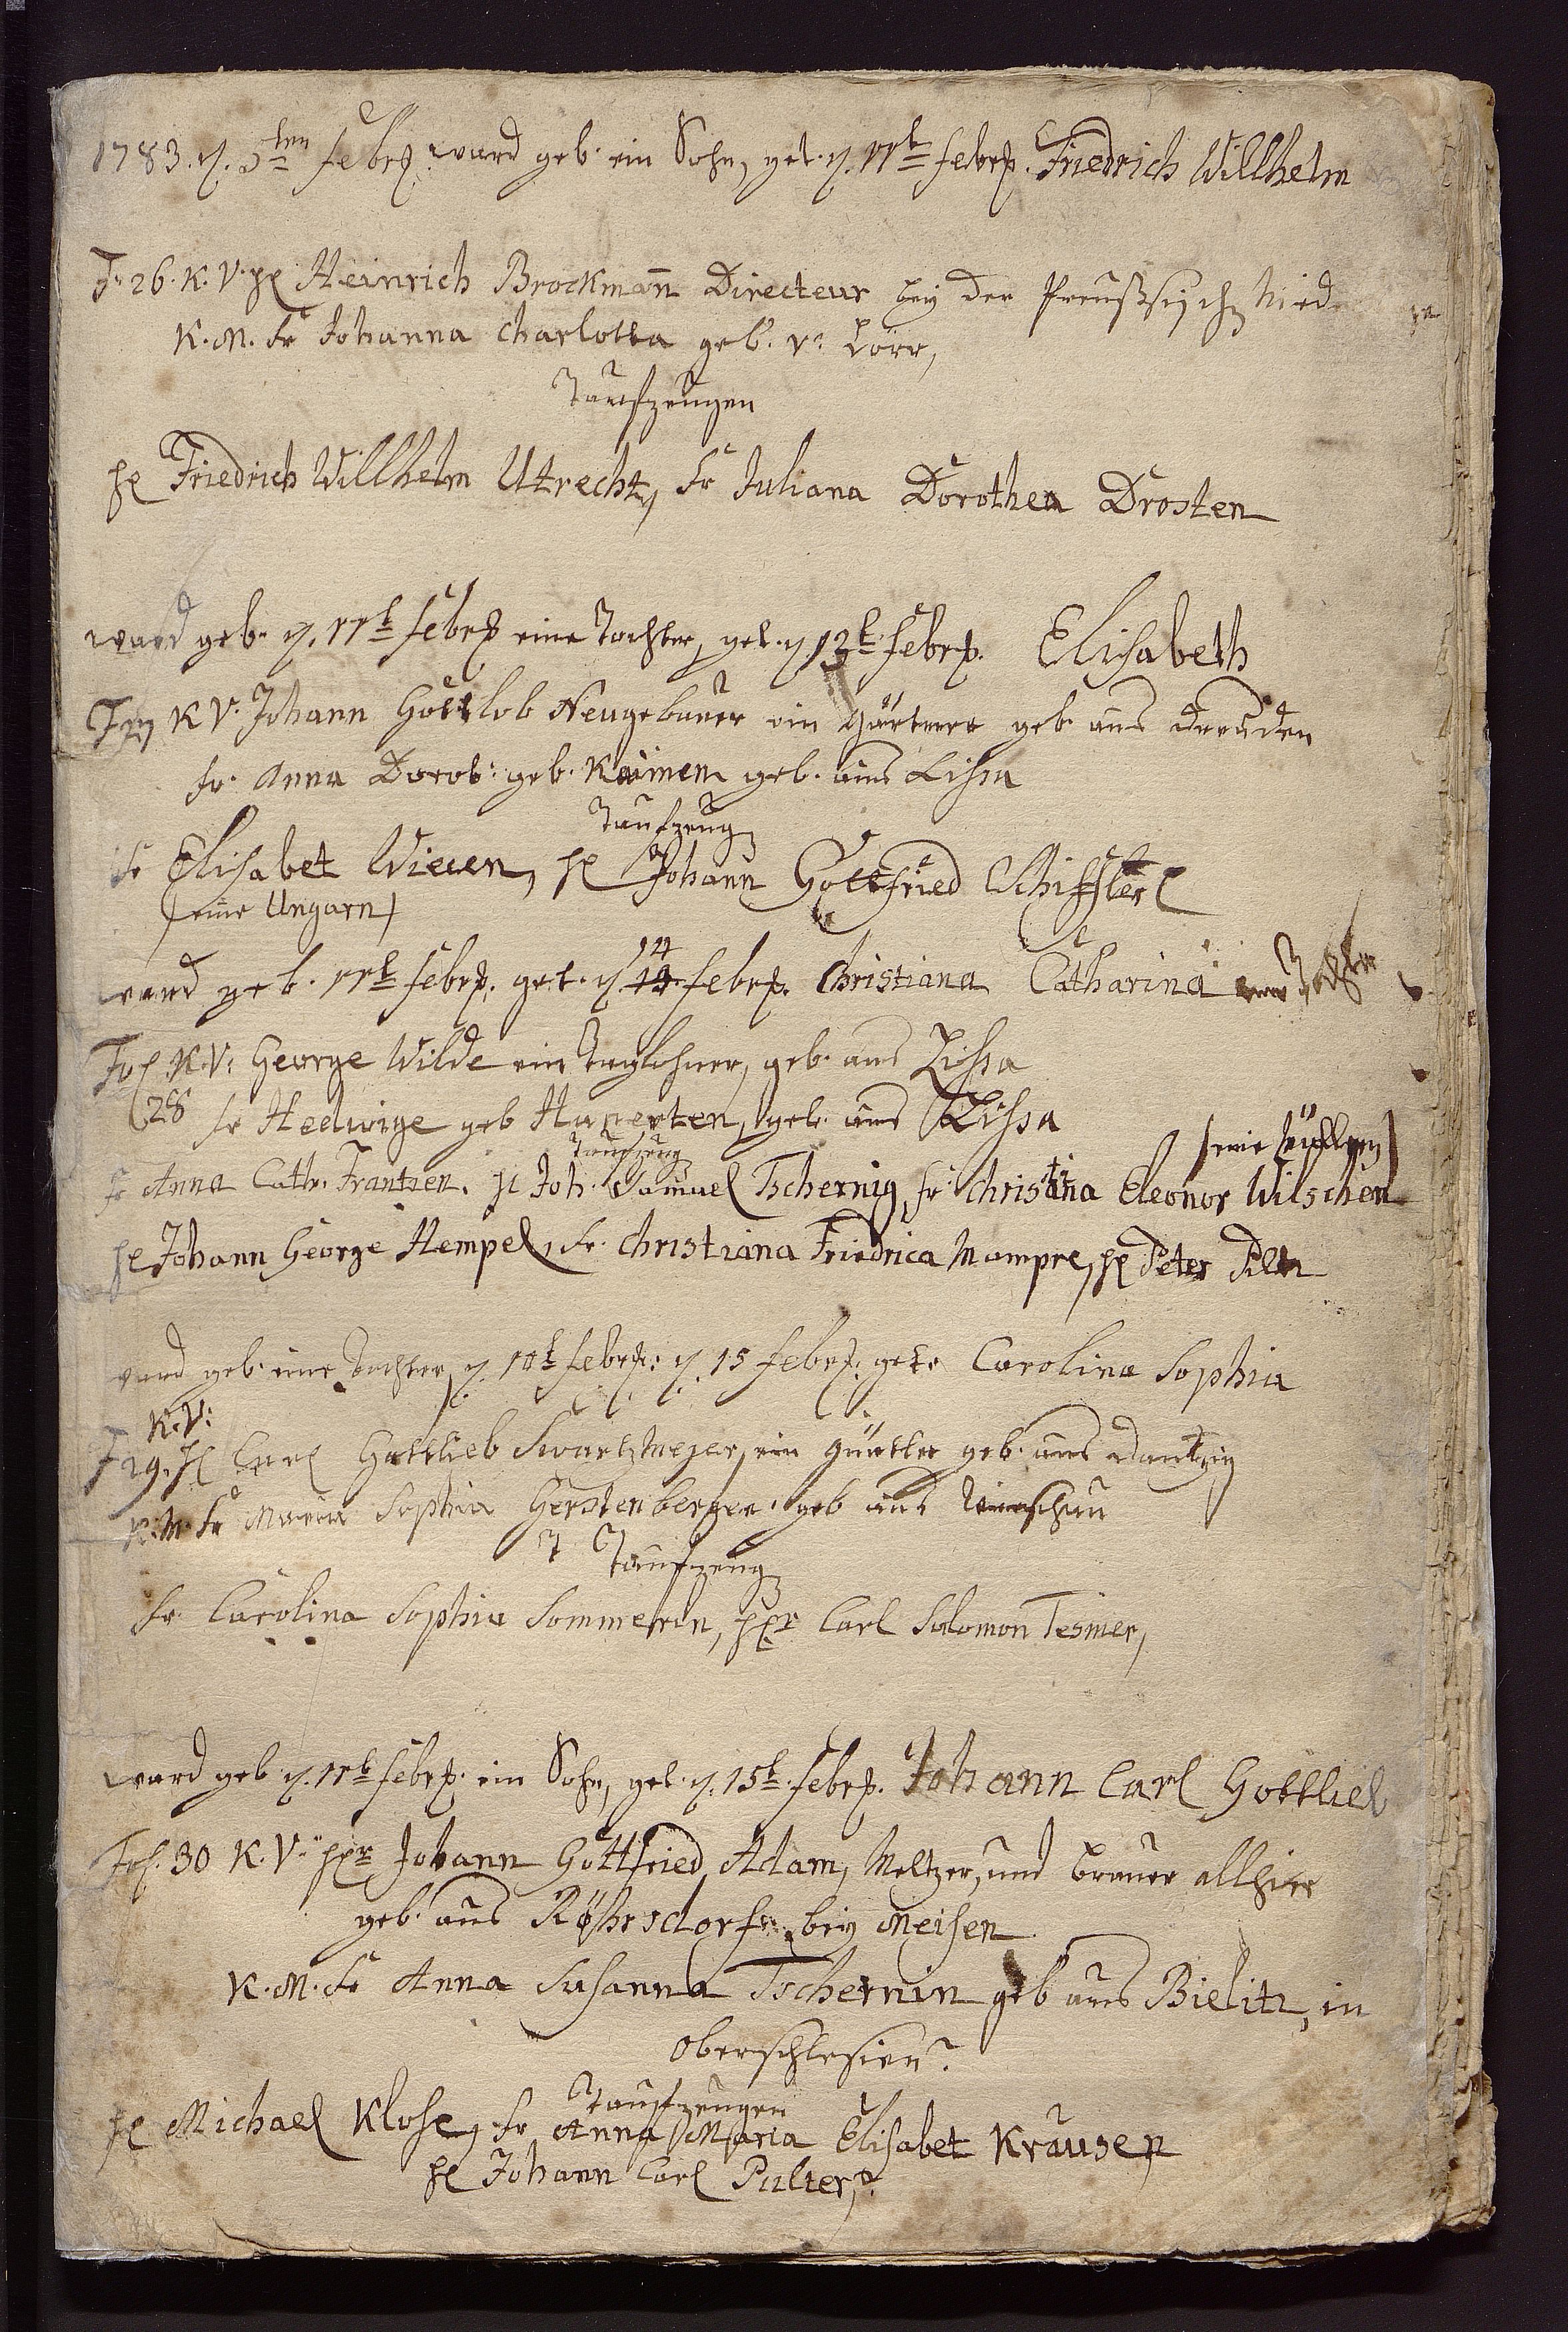 1783. d. 5ten Febr. ward geb. ein Sohn, get. d. 11t Febr. Friedrich Willhelm
F. 26. K. V. H Heinrich Brockmañ Directeur bey der Preußsisch
K. M. Fr Johanna Charlotta geb. v.
Taufzeugen
H Friedrich Willhelm Utrecht, Fr Juliana Dorothea Drosten
ward geb. d. 11t Febr. eine Tochter, get. d. 13t Febr. Elisabeth
K V. Johann Gottlob Neugebauer ein Gärtner geb. aus Dresden
Fr. Anna Dorot: geb. geb. aus Lissa
Taufzeug
Fr Elisabet Wiecen, H Johann Gottfried Schiffter
(eine Ungarn)
ward geb. 11t Febr. get. d. 14 Febr. Christiana Catharina eine Tochter
Fol K. V: George Wilde ein Taglohner, geb. aus Lissa
28 Fr Hedwige geb geb. aus Lissa
Taufzeug
Fr Anna Cath. Frantzen. H Joh. Samuel Tschernig, Fr Christina Eleonor Wilschen
H Johann George Hempel, Fr. Christiana Friedrica Mampre, H Peter
ward geb. eine Tochter, d. 10t Febr: d. 15 Febr. get. Carolina Sophia
K. V:
F 29. H Carl Gottlieb Swartzmejer, ein Gürtler geb. aus Dantzig
K. M. Fr Maria Sophia Gerstenberger. geb aus Warschau
Taufzeug
Fr. Carolina Sophia Sommerin, Hr Carl Salomon Tesmer,
ward geb d. 11t Febr. ein Sohn, get. d. 15t. Febr. Johann Carl Gottlieb
Fol. 30 K. V. Hr Johann Gottfried Adam, Meltzer, und Brauer allhier
geb. aus Röhrsdorf bey Meisen
K. M. Fr Anna Susanna Tschernin geb aus Bielitz, in
Oberschlesien
Taufzeugen
H Michael Klose, Fr Anna Maria Elisabet Krausen
H Johann Carl Pulter,